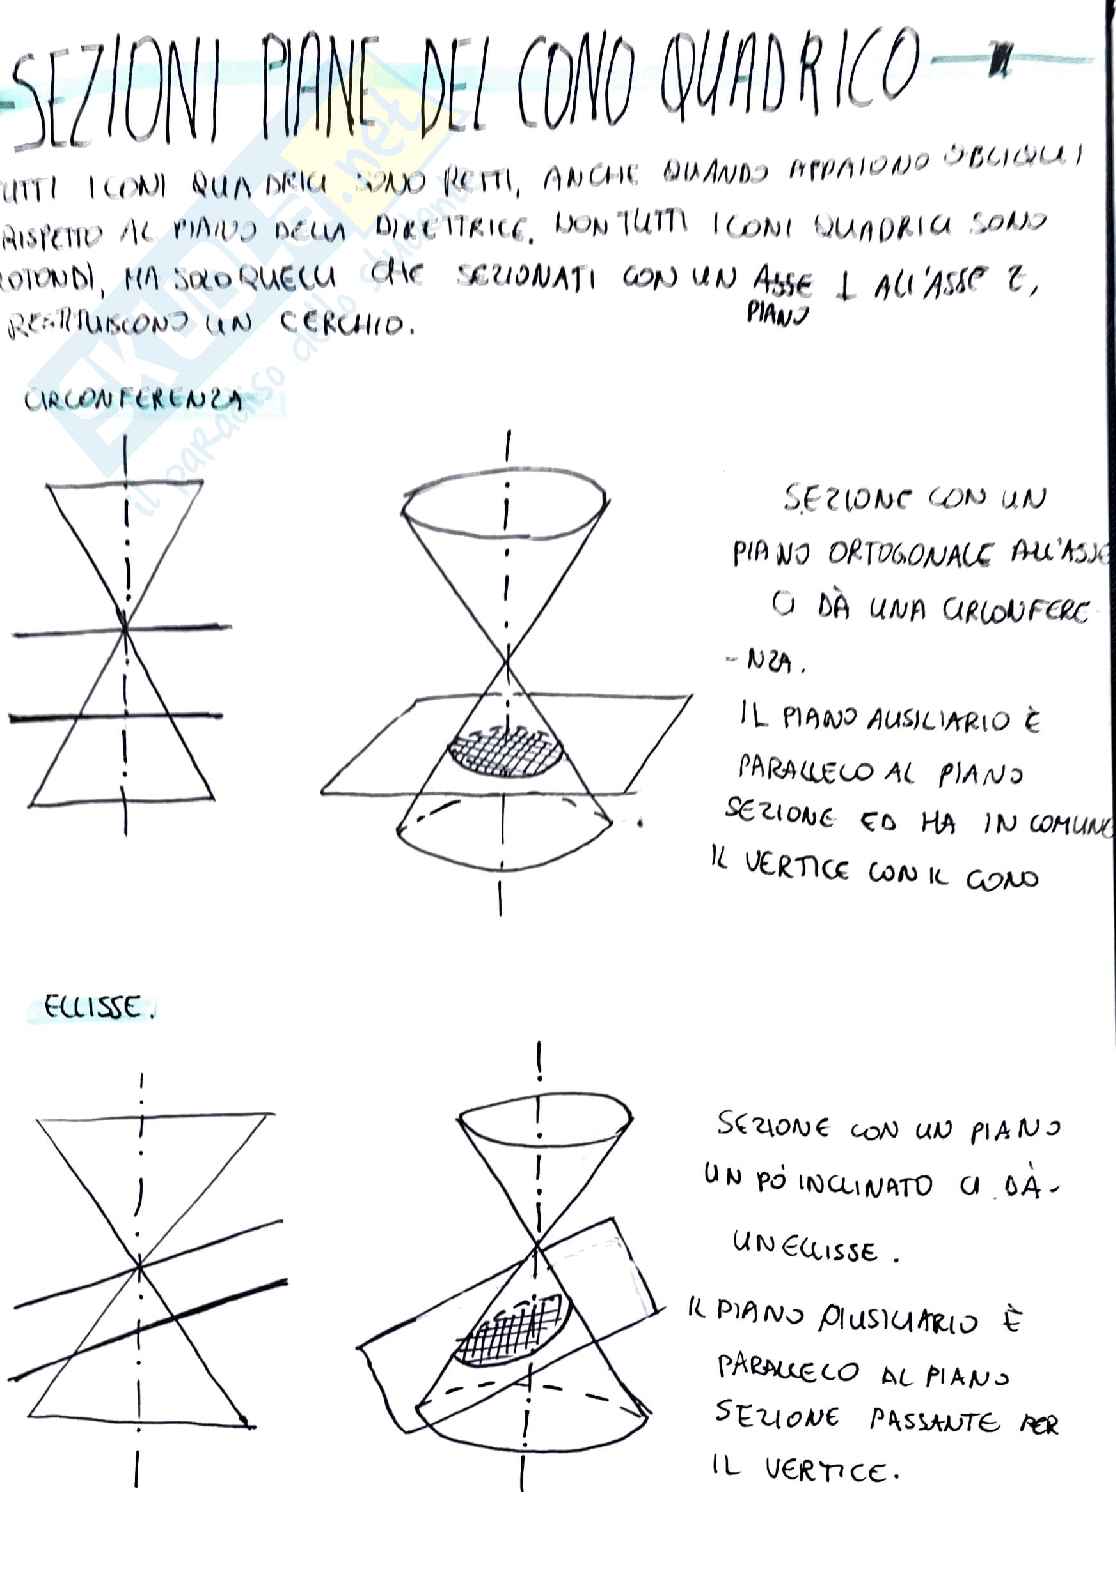 SEZIONI PIANE DEL CONO QUADRICO
TUTTI I CONI QUADRICI SONO RETTI, ANCHE QUANDO APPAIONO OBLIQUI
RISPETTO AL PIANO DELLA DIRETTRICE. NON TUTTI I CONI QUADRICI SONO
ROTONDI, MA SOLO QUELLI CHE SEZIONATI CON UN ASSE ⊥ ALL'ASSE Z,
PIANO
RESTITUISCONO UN CERCHIO.
SKUOLA.net
il paradiso dello studente
CIRCONFERENZA
SEZIONE CON UN
PIANO ORTOGONALE ALL'ASSE
CI DÀ UNA CIRCONFERE
-NZA.
IL PIANO AUSILIARIO È
PARALLELO AL PIANO
SEZIONE ED HA IN COMUNE
IL VERTICE CON IL CONO
ELLISSE.
SEZIONE CON UN PIANO
UN PÒ INCLINATO CI DÀ-
UN ELLISSE.
IL PIANO AUSILIARIO È
PARALLELO AL PIANO
SEZIONE PASSANTE PER
IL VERTICE.